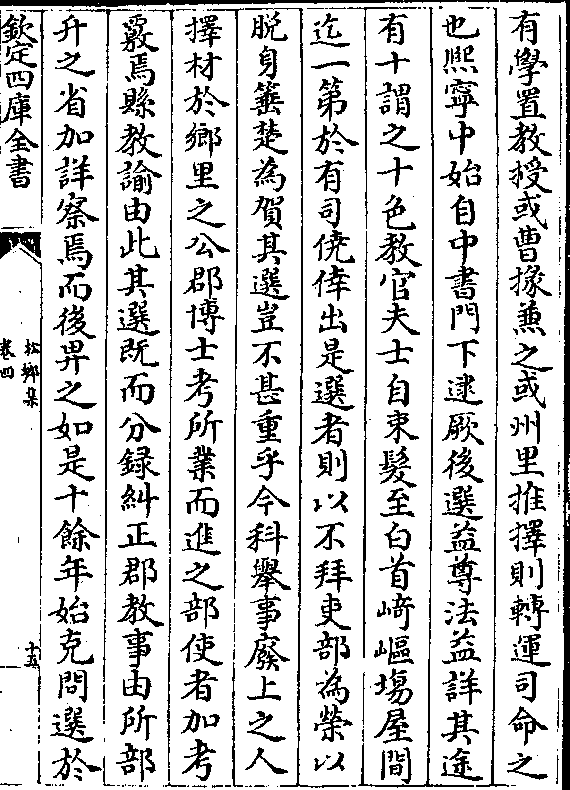 有學置教授或曹掾兼之或州里推擇則轉運司命之
也熈寧中始自中書門下逮厥後選益尊法益詳其途
有十謂之十色教官夫士自束髮至白首﨑嶇塲屋間
迄一第於有司僥倖出是選者則以不拜吏部為榮以
脱身箠楚為賀其選豈不甚重乎今科舉事廢上之人
擇材於鄉里之公郡博士考所業而進之部使者加考
覈焉縣教諭由此其選既而分録糾正郡教事由所部
升之省加詳察焉而後畀之如是十餘年始克問選於
欽定四庫全書
松鄉集
卷四
十五